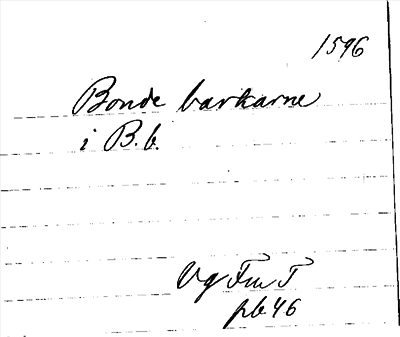 1596
Bonde barkarne
i B.b.
Vg Fm T
pb 46